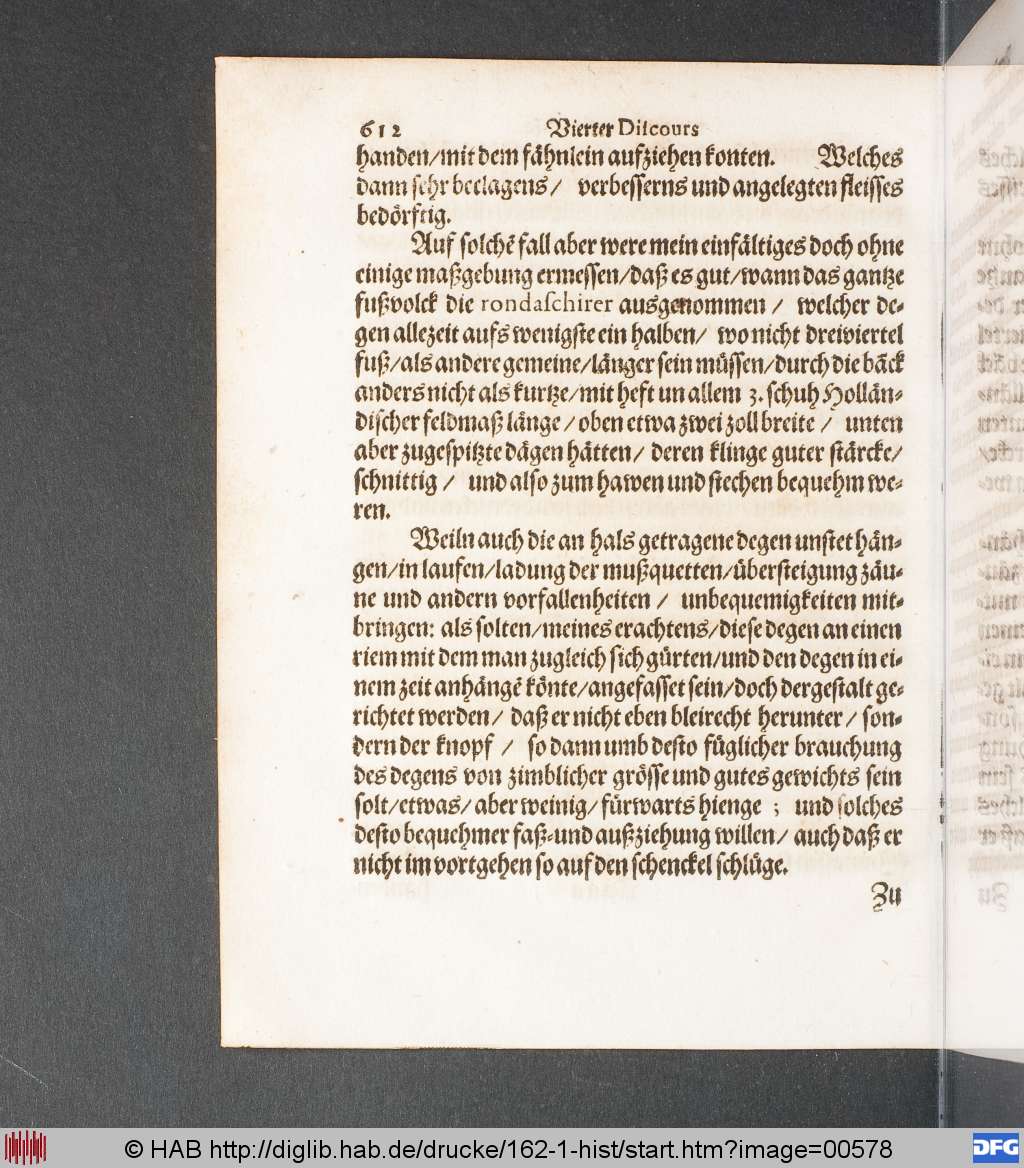 612 Vierter Discours
handen/mit dem fähnlein aufziehen konten. Welches
dann sehr beclagens/ verbesserns und angelegten fleisses
bedörftig.
Auf solchẽ fall aber were mein einfältiges doch ohne
einige maßgebung ermessen/daß es gut/wann das gantze
fußvolck die rondaschirer ausgenommen/ welcher de-
gen allezeit aufs wenigste ein halben/ wo nicht dreiviertel
fuß/als andere gemeine/länger sein müssen/durch die bäck
anders nicht als kurtze/mit heft un allem 3. schuh Hollän-
discher feldmaß länge/oben etwa zwei zoll breite/ unten
aber zugespitzte dägen hätten/ deren klinge guter stärcke/
schnittig/ und also zum hawen und stechen bequehm we-
ren.
Weiln auch die an hals getragene degen unstet hän-
gen/in laufen/ladung der mußquetten/übersteigung zäu-
ne und andern vorfallenheiten/ unbequemigkeiten mit-
bringen: als solten/meines erachtens/diese degen an einen
riem mit dem man zugleich sich gürten/und den degen in ei-
nem zeit anhängẽ könte/angefasset sein/doch dergestalt ge-
richtet werden/ daß er nicht eben bleirecht herunter/ son-
dern der knopf/ so dann umb desto füglicher brauchung
des degens von zimblicher grösse und gutes gewichts sein
solt/etwas/ aber weinig/ fürwarts hienge; und solches
desto bequehmer faß-und außziehung willen/ auch daß er
nicht im vortgehen so auf den schenckel schlüge.
Zu
© HAB http://diglib.hab.de/drucke/162-1-hist/start.htm?image=00578
DFG